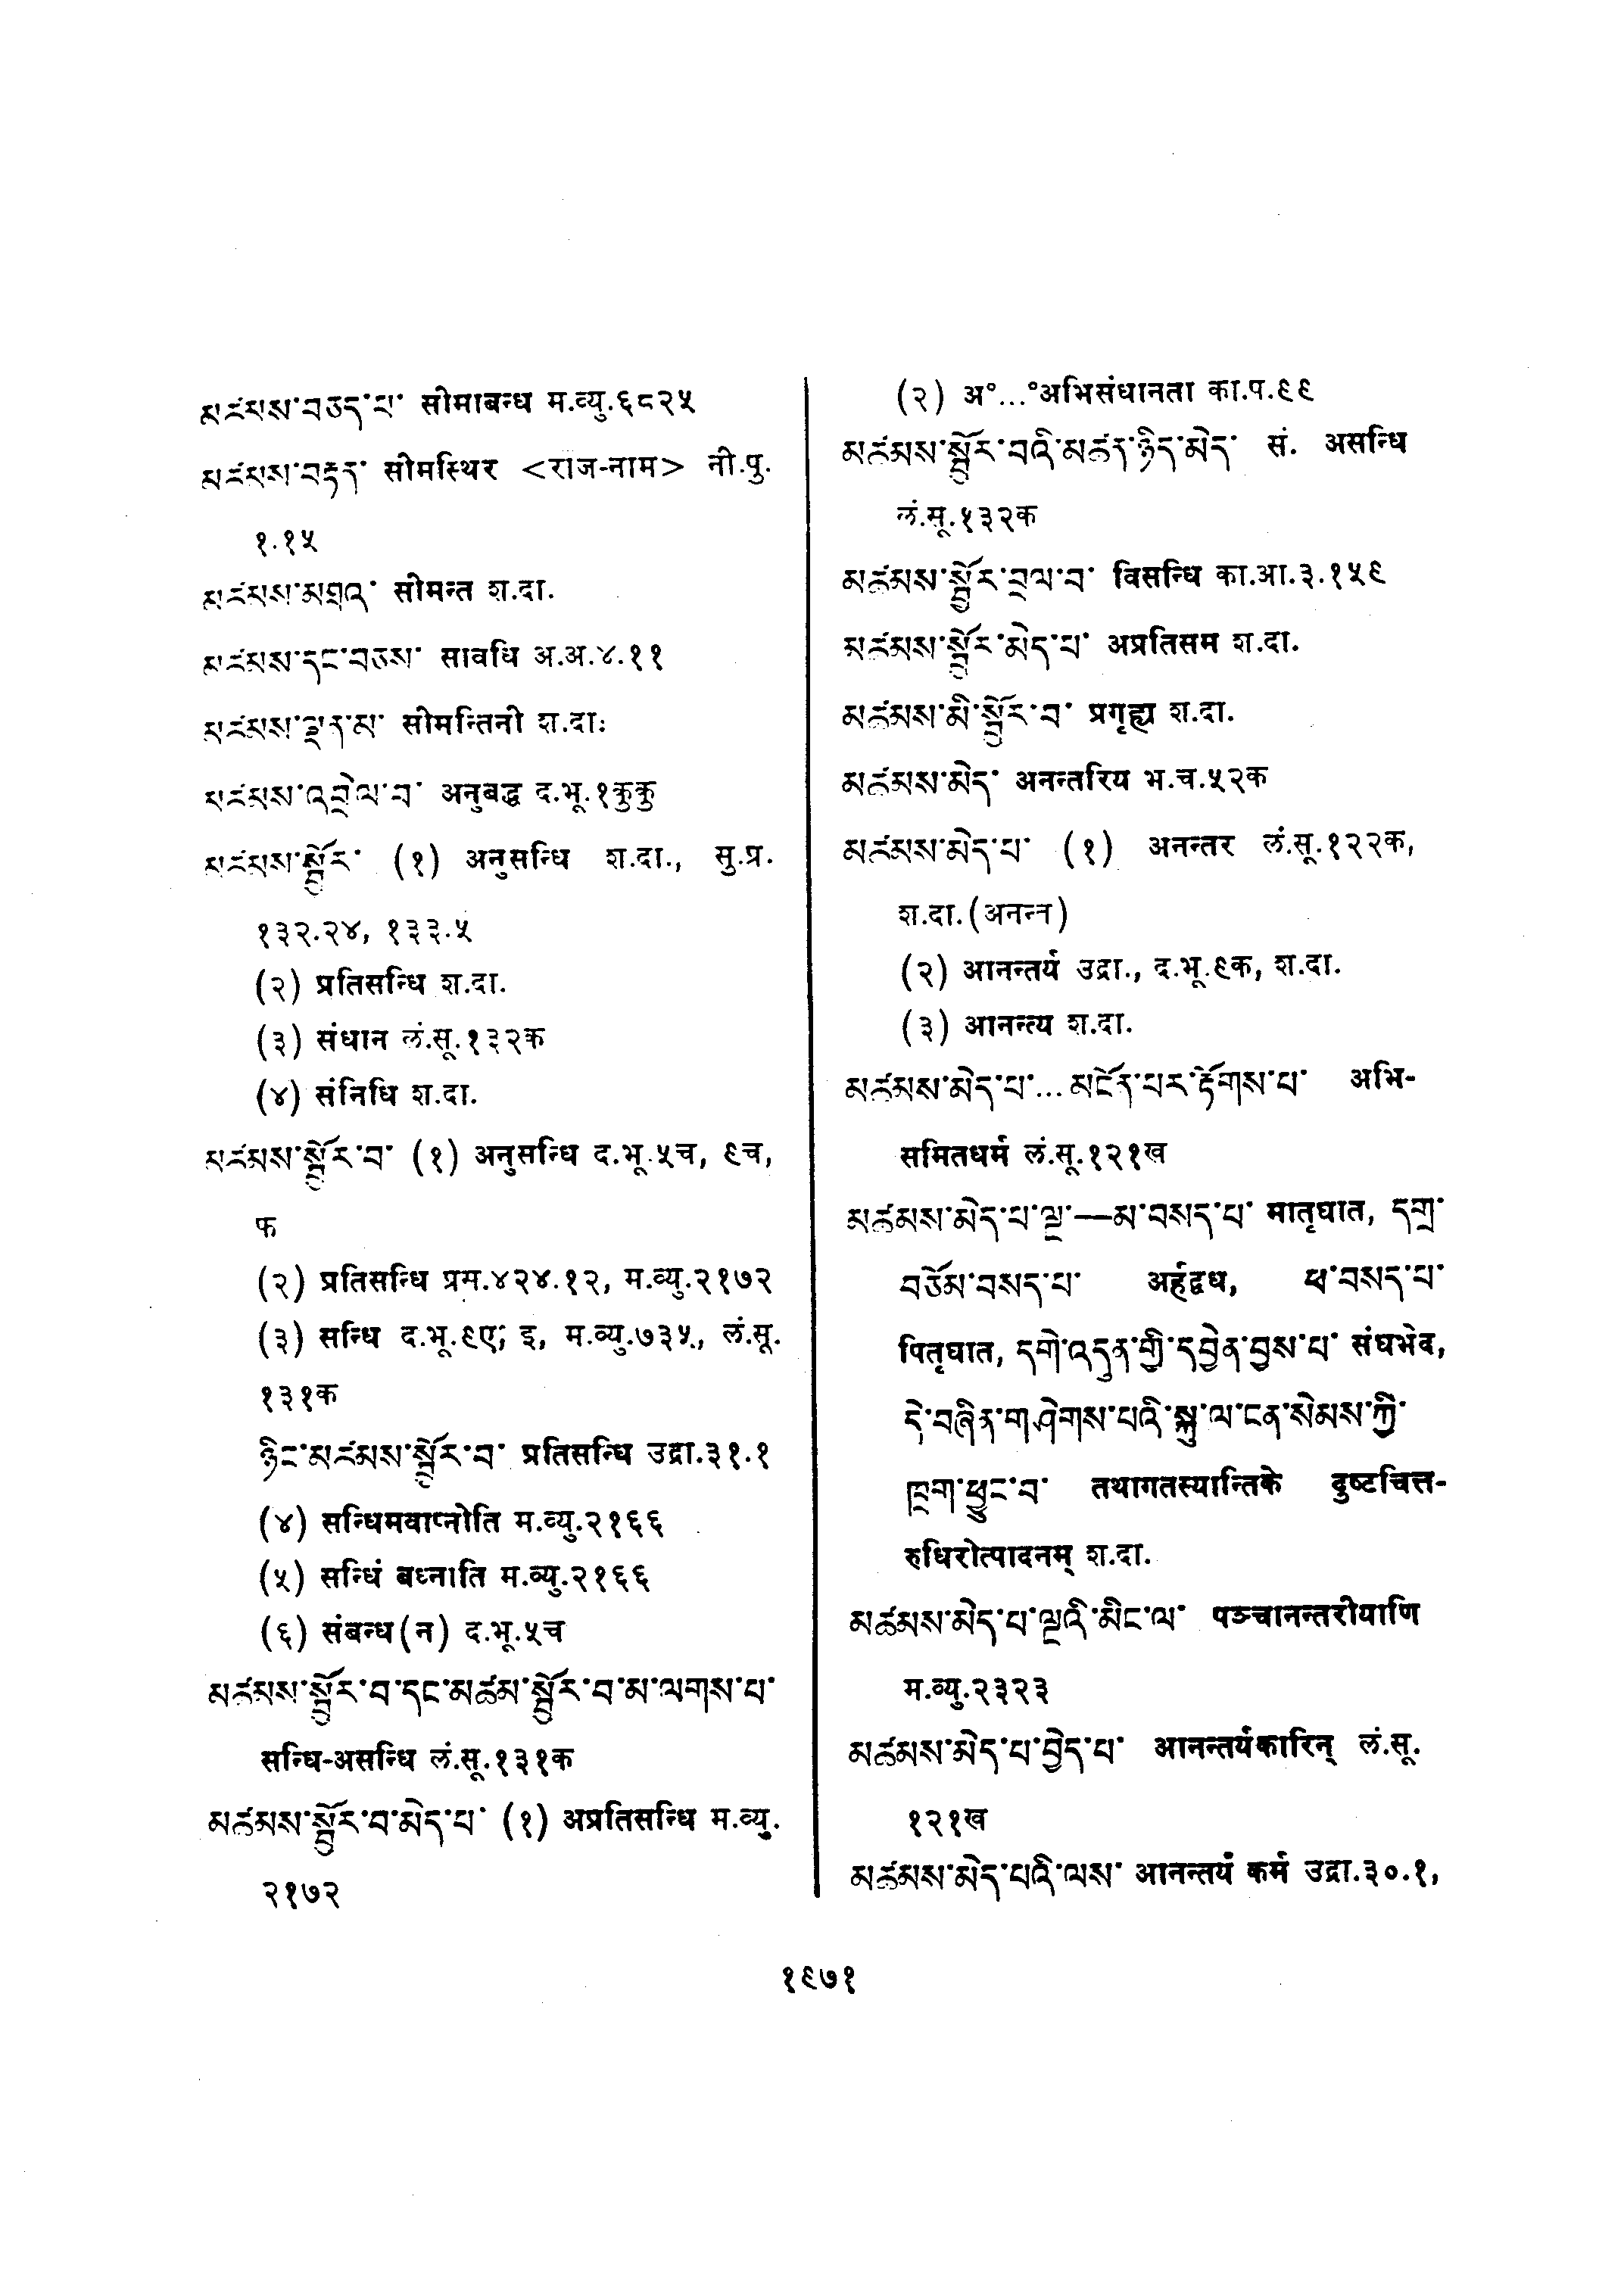 མཚམས་བཅད་པ་ सीमाबन्ध म.व्यु.६८२५
མཚམས་བརྟན་ सीमस्थिर <राज-नाम> नी.पु.
१.१५
མཚམས་མཐའ་ सीमन्त श.दा.
མཚམས་དང་བཅས་ सावधि अ.अ.४.११
མཚམས་ལྡན་མ་ सीमन्तिनी श.दा:
མཚམས་འབྲེལ་བ་ अनुबद्ध द.भू.१कुकु
མཚམས་སྦྱོར་ (१) अनुसन्धि श.दा., सु.प्र.
१३२.२४, १३३.५
(२) प्रतिसन्धि श.दा.
(३) संधान लं.सू.१३२क
(४) संनिधि श.दा.
མཚམས་སྦྱོར་བ་ (१) अनुसन्धि द.भू.५च, ९च,
फ
(२) प्रतिसन्धि प्रम.४२४.१२, म.व्यु.२१७२
(३) सन्धि द.भू.९ए; इ, म.व्यु.७३५, लं.सू.
१३१क
ཉིང་མཚམས་སྦྱོར་བ་ प्रतिसन्धि उद्रा.३१.१
(४) सन्धिमवाप्नोति म.व्यु.२१६६
(५) सन्धिं बध्नाति म.व्यु.२१६६
(६) संबन्ध(न) द.भू.५च
མཚམས་སྦྱོར་བ་དང་མཚམ་སྦྱོར་བ་མ་ལགས་པ་
सन्धि-असन्धि लं.सू.१३१क
མཚམས་སྦྱོར་བ་མེད་པ་ (१) अप्रतिसन्धि म.व्यु.
२१७२
(२) अ°...°अभिसंधानता का.प.९९
མཚམས་སྦྱོར་བའི་མཚན་ཉིད་མེད་ सं. असन्धि
लं.सू.१३२क
མཚམས་སྦྱོར་བྲལ་བ་ विसन्धि का.आ.३.१५९
མཚམས་སྦྱོར་མེད་པ་ अप्रतिसम श.दा.
མཚམས་མི་སྦྱོར་བ་ प्रगृह्य श.दा.
མཚམས་མེད་ अनन्तरिय भ.च.५२क
མཚམས་མེད་པ་ (१) अनन्तर लं.सू.१२२क,
श.दा.(अनन्त)
(२) आनन्तर्य उद्रा., द.भू.९क, श.दा.
(३) आनन्त्य श.दा.
མཚམས་མེད་པ་...མངོན་པར་རྟོགས་པ་ अभि-
समितधर्म लं.सू.१२१ख
མཚམས་མེད་པ་ལྔ་—མ་བསད་པ་ मातृघात, དགྲ་
བཅོམ་བསད་པ་ अर्हद्वध, ཕ་བསད་པ་
पितृघात, དགེ་འདུན་གྱི་དབྱེན་བྱས་པ་ संघभेद,
དེ་བཞིན་གཤེགས་པའི་སྐུ་ལ་ངན་སེམས་ཀྱི་
ཁྲག་ཕྱུང་བ་ तथागतस्यान्तिके दुष्टचित्त-
रुधिरोत्पादनम् श.दा.
མཚམས་མེད་པ་ལྔའི་མིང་ལ་ पञ्चानन्तरीयाणि
म.व्यु.२३२३
མཚམས་མེད་པ་བྱེད་པ་ आनन्तर्यकारिन् लं.सू.
१२१ख
མཚམས་མེད་པའི་ལས་ आनन्तर्यं कर्म उद्रा.३०.१,
१९७१